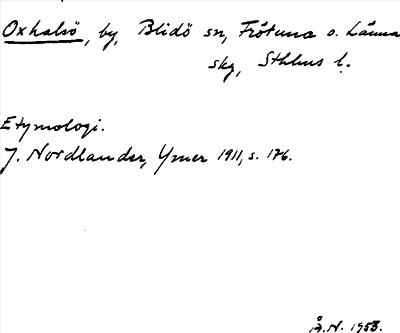 Oxhalsö, by, Blidö sn, Frötuna o. Länna
skg, Sthlms l.
Etymologi.
J. Nordlander, Ymer 1911, s. 176.
Å.N. 1953.